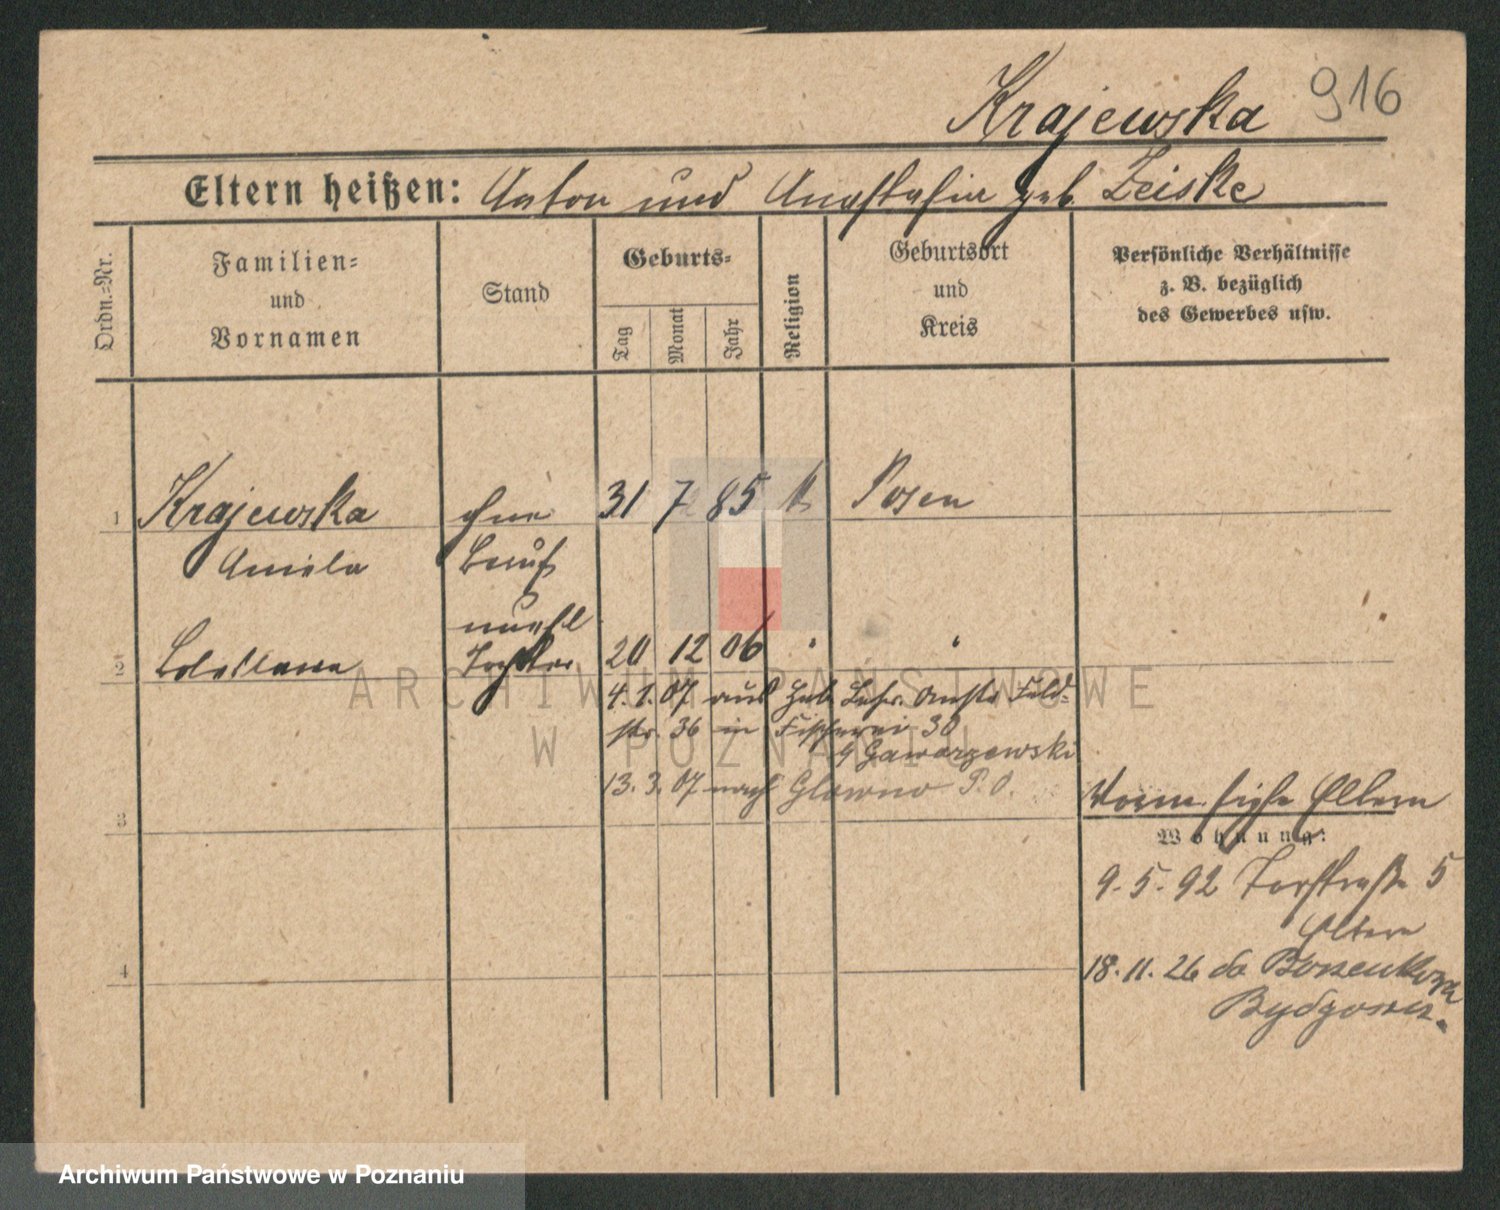 916
Krajewska
Eltern heißen: Anton und Anastasia geb. Zeiske
Ordn.-Nr.
Familien-
und
Vornamen
Stand
Geburts-
Tag
Monat
Jahr
Religion
Geburtsort
und
Kreis
Persönliche Verhältnisse
z. B. bezüglich
des Gewerbes usw.
1 Krajewska ohne 31 7 85 k Posen
Aniela Beruf
unehl
2 Boleslawa Tochter 20 12 06 " "
4. 1. 07 aus Feld-
str. 36 in Fischerei 30
b Gaworzewski
13. 3. 07 nach Glowno P. O.
3
Vorm. siehe Eltern
Wohnung:
9. 5. 92 Torstraße 5
Eltern
18. 11. 26 do
Bydgoszcz.
4
ARCHIWUM PAŃSTWOWE
W POZNANIU
Archiwum Państwowe w Poznaniu